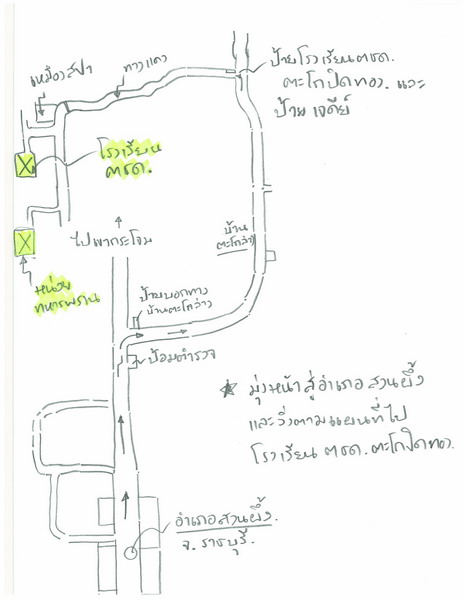 ป้ายโรงเรียนตชด.
ตะโกปิดทอง. และ
ป้ายเจดีย์
ทางแคบ
โรงเรียน
ตชด.
ไปเขากระโจม
บ้าน
ตะโกล่าง
หน่วย
ทหารพราน
ป้ายบอกทาง
บ้านตะโกล่าง
ป้อมตำรวจ
★ มุ่งหน้าสู่อำเภอสวนผึ้ง
และวิ่งตามแผนที่ไป
โรงเรียน ตชด.ตะโกปิดทอง.
อำเภอสวนผึ้ง.
จ. ราชบุรี.